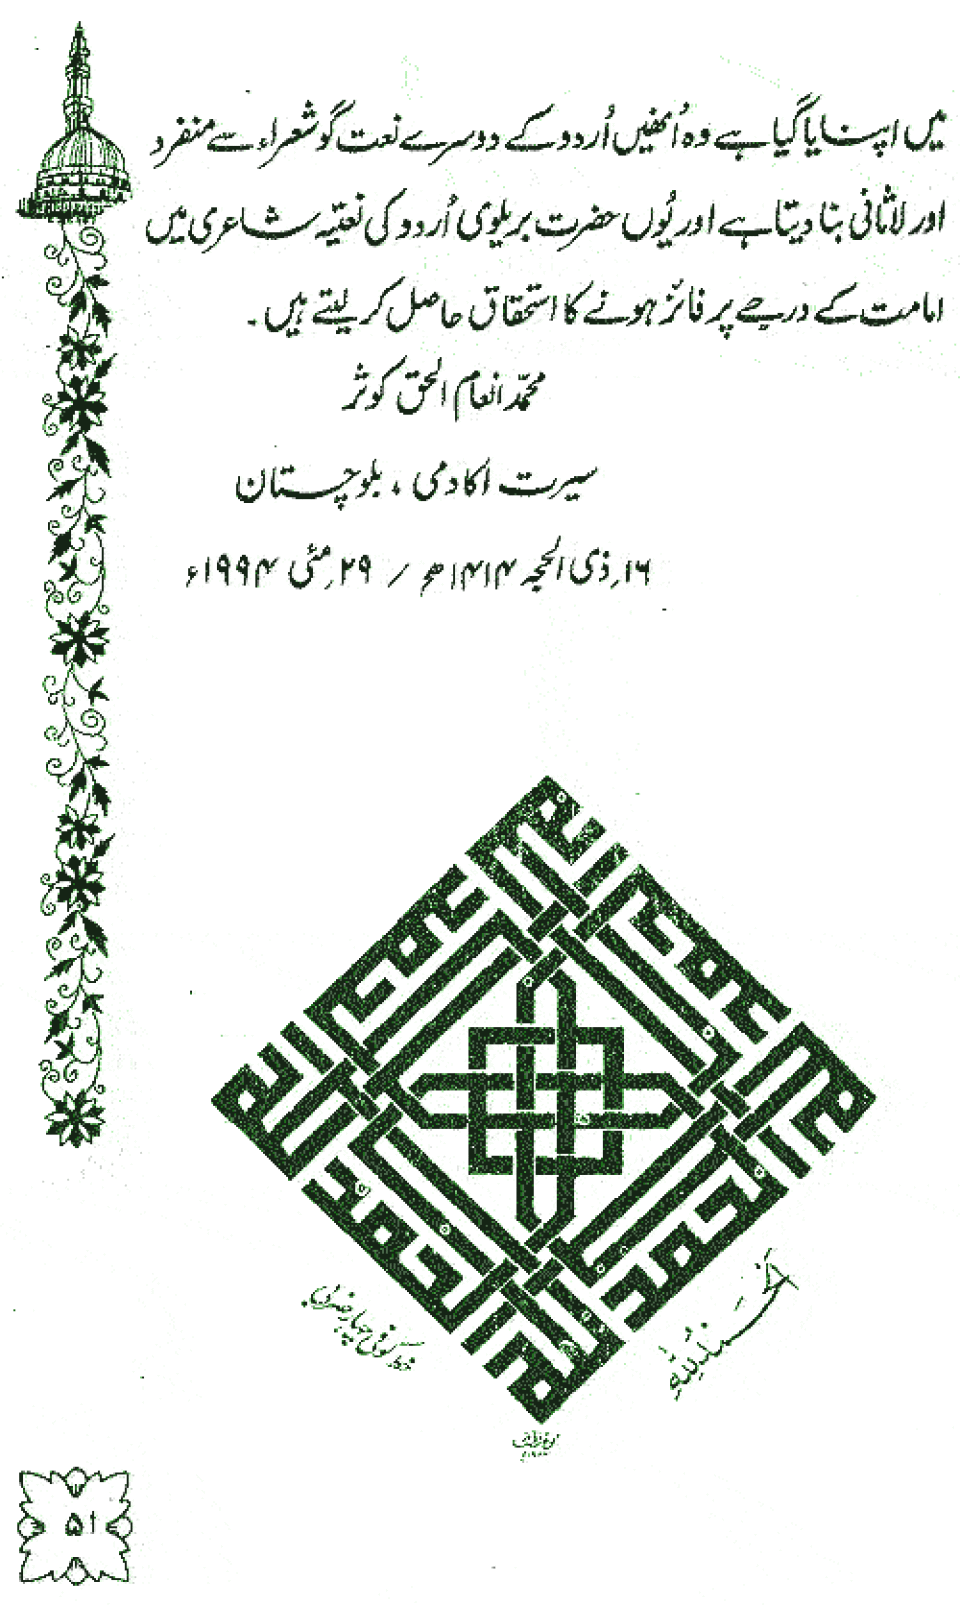 میں اپنایا گیا ہے وہ اُنھیں اُردو کے دوسرے نعت گو شعراء سے منفرد
اور لاثانی بنا دیتا ہے اور یُوں حضرت بریلوی اُردو کی نعتیہ شاعری میں
امامت کے درجے پر فائز ہونے کا استحقاق حاصل کر لیتے ہیں۔
محمّد انعام الحق کوثر
سیرت اکادمی ، بلوچستان
۱۶؍ذی الحجہ ۱۴۱۴ھ / ۲۹؍مئی ۱۹۹۴ء
الحمدللہ
خط کوفی چہار ضربی
۵۱